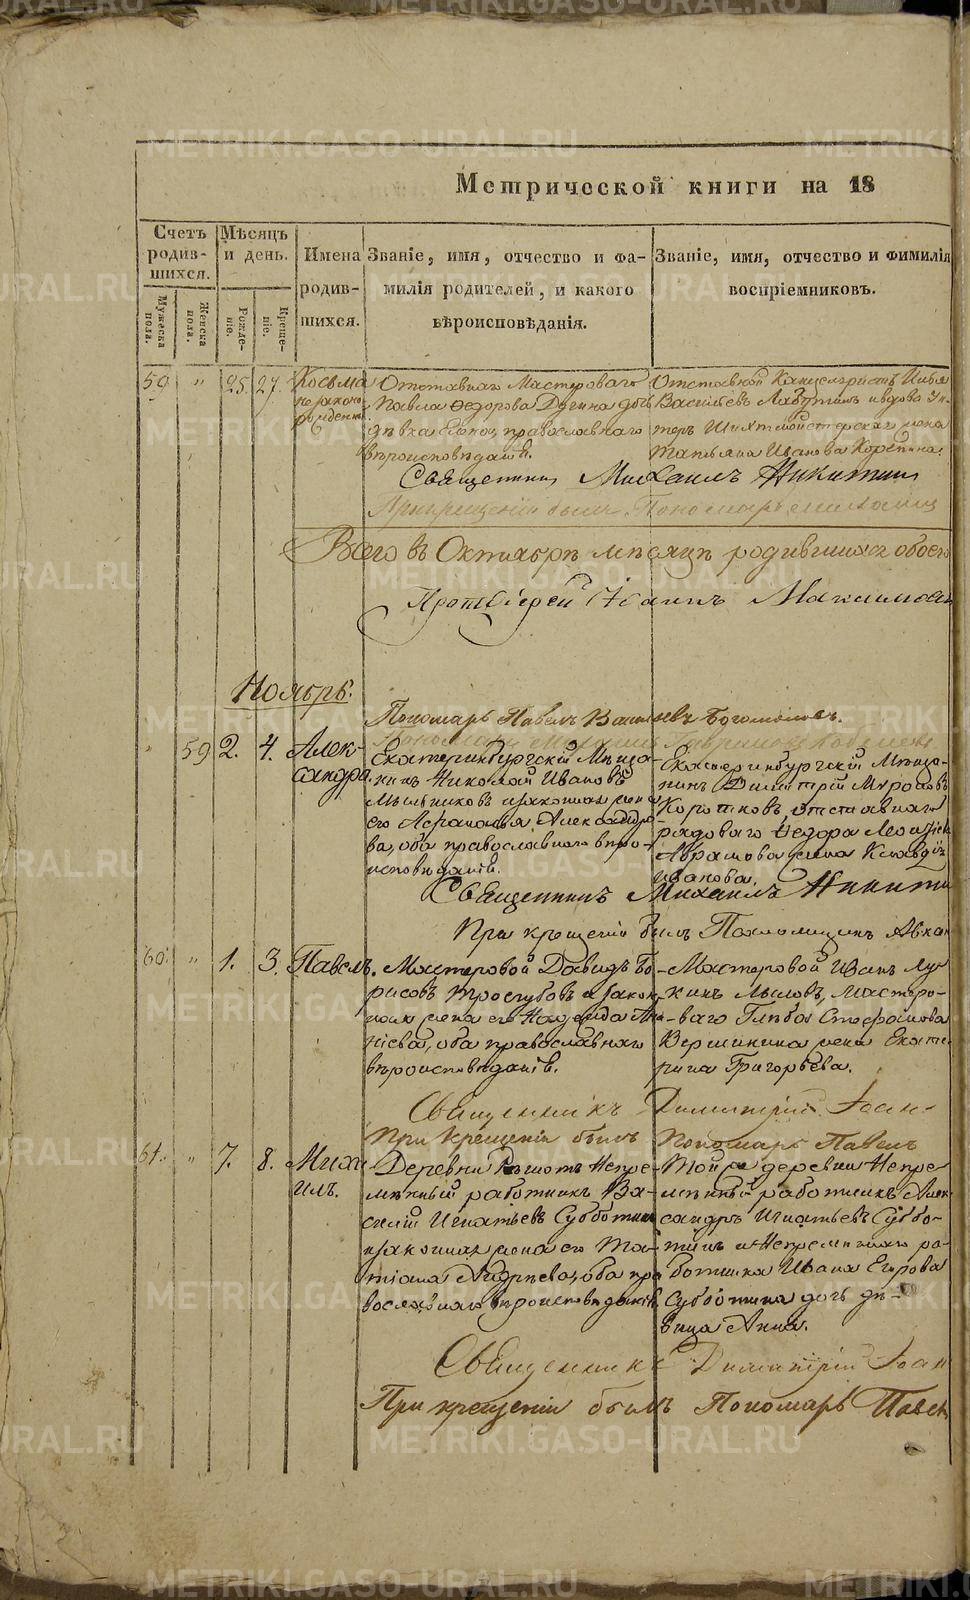 Метрической книги на 18
Счетъ родившихся.
Мѣсяцъ и день.
Имена родившихся.
Званіе, имя, отчество и фамилія родителей, и какого вѣроисповѣданія.
Званіе, имя, отчество и фимилія воспріемниковъ.
Мужеска пола.
Женска пола.
Рожденіе.
Крещеніе.
59 " 25. 27. Косьма незаконорожденн
Отставнаго Мастероваго
Павла Федорова дочь
дѣвка Елена, православнаго
вѣроисповѣданія.
Отставной Канцеляристъ Илья
Васильевъ и вдова Ун
теръ Шихтмейстерская жена
Татьяна Иванова Корепина.
Священникъ Михаилъ Никитин
При крещеніи былъ Пономарь
Всего въ Октябрѣ мѣсяцѣ родившихся обоего
Протоіерей Іоаннъ Максимовъ
Ноябрь.
Пономарь Павелъ Васильевъ Богомоловъ.
" 59 2. 4. Александра.
Екатеринбургскій Мѣща-
нинъ Николай Ивановъ
Мѣльниковъ и законная жена
его Александро-
ва, оба православнаго вѣро-
исповѣданія.
Екатеринбургскій Мѣща-
нинъ Димитрій Мироновъ
Коротковъ, отставнаго
рядоваго Федора
Аврамова жена Клавдія
Иванова.
Священникъ Михаилъ Никити
При крещеніи былъ
60. " 1. 3. Павелъ.
Мастеровой Давидъ Бо-
рисовъ Трослубовъ и закон-
ная жена его Надежда
ніева, оба православнаго
вѣроисповѣданія.
Мастеровой Иванъ Лу-
кинъ Мыловъ, Мастеро-
ваго Глѣба Стефанова
Вершинина жена Екате-
рина Григорьева.
Священникъ Димитрій Іоан-
При крещеніи былъ Пономарь Павелъ
61. " 7. 8. Михаилъ.
Деревни Рѣшотъ Непре-
мѣнный работникъ Ва-
силій Игнатьевъ Субботинъ
и законная жена его Та-
тіана Андреева, оба пра
вославнаго вѣроисповѣданія.
Той же деревни Непре
мѣнный работникъ Алек
сандръ Игнатьевъ Суббо-
тинъ и Непремѣннаго ра-
ботника Ивана Егорова
Субботина дочь дѣ-
вица Анна.
Священникъ Димитрій Іоан
При крещеніи былъ Пономарь Павел
METRIKI.GASO-URAL.RU